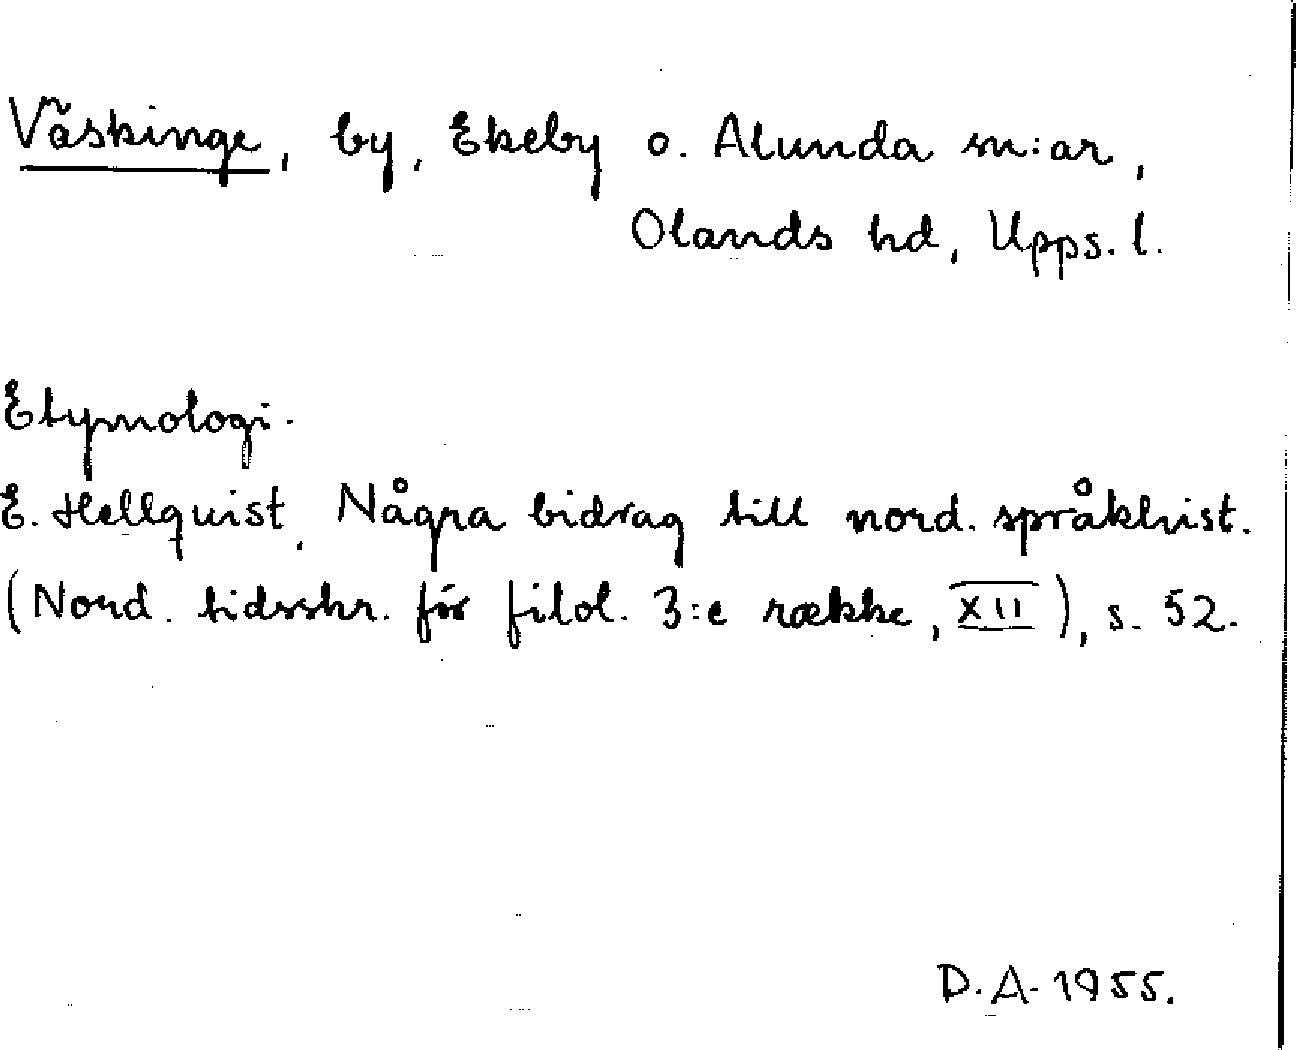 Väskinge, by, Ekeby o. Alunda sn:ar,
Olands hd, Upps. l.
Etymologi.
E. Hellquist, Några bidrag till nord. språkhist.
(Nord. tidsskr. för filol. 3:e række, XII), s. 52.
D.A. 1955.